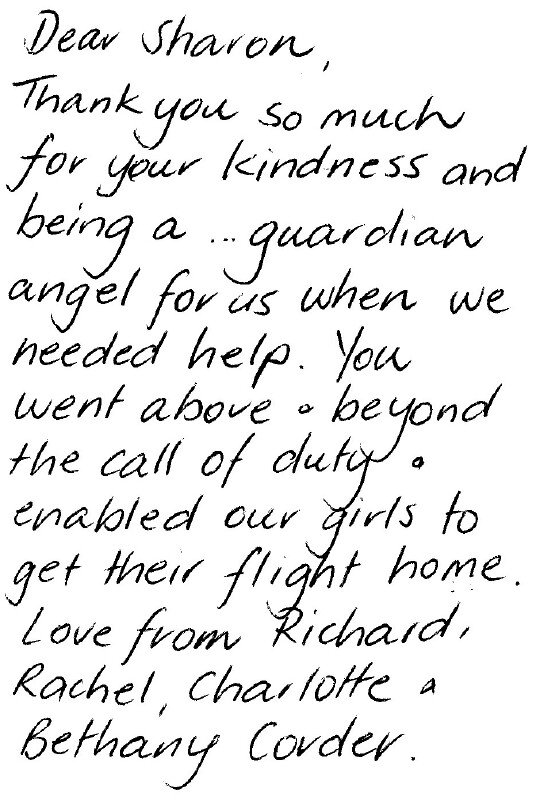 Dear Sharon,
Thank you so much
for your kindness and
being a ... guardian
angel for us when we
needed help. You
went above & beyond
the call of duty &
enabled our girls to
get their flight home.
Love from Richard,
Rachel, Charlotte &
Bethany Corder.